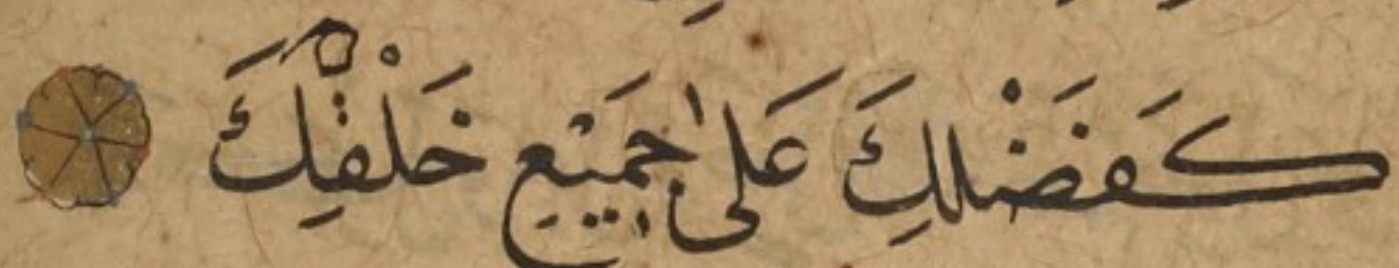 كَفَضْلِكَ عَلَىٰ جَمِيْعِ خَلْقِكَ